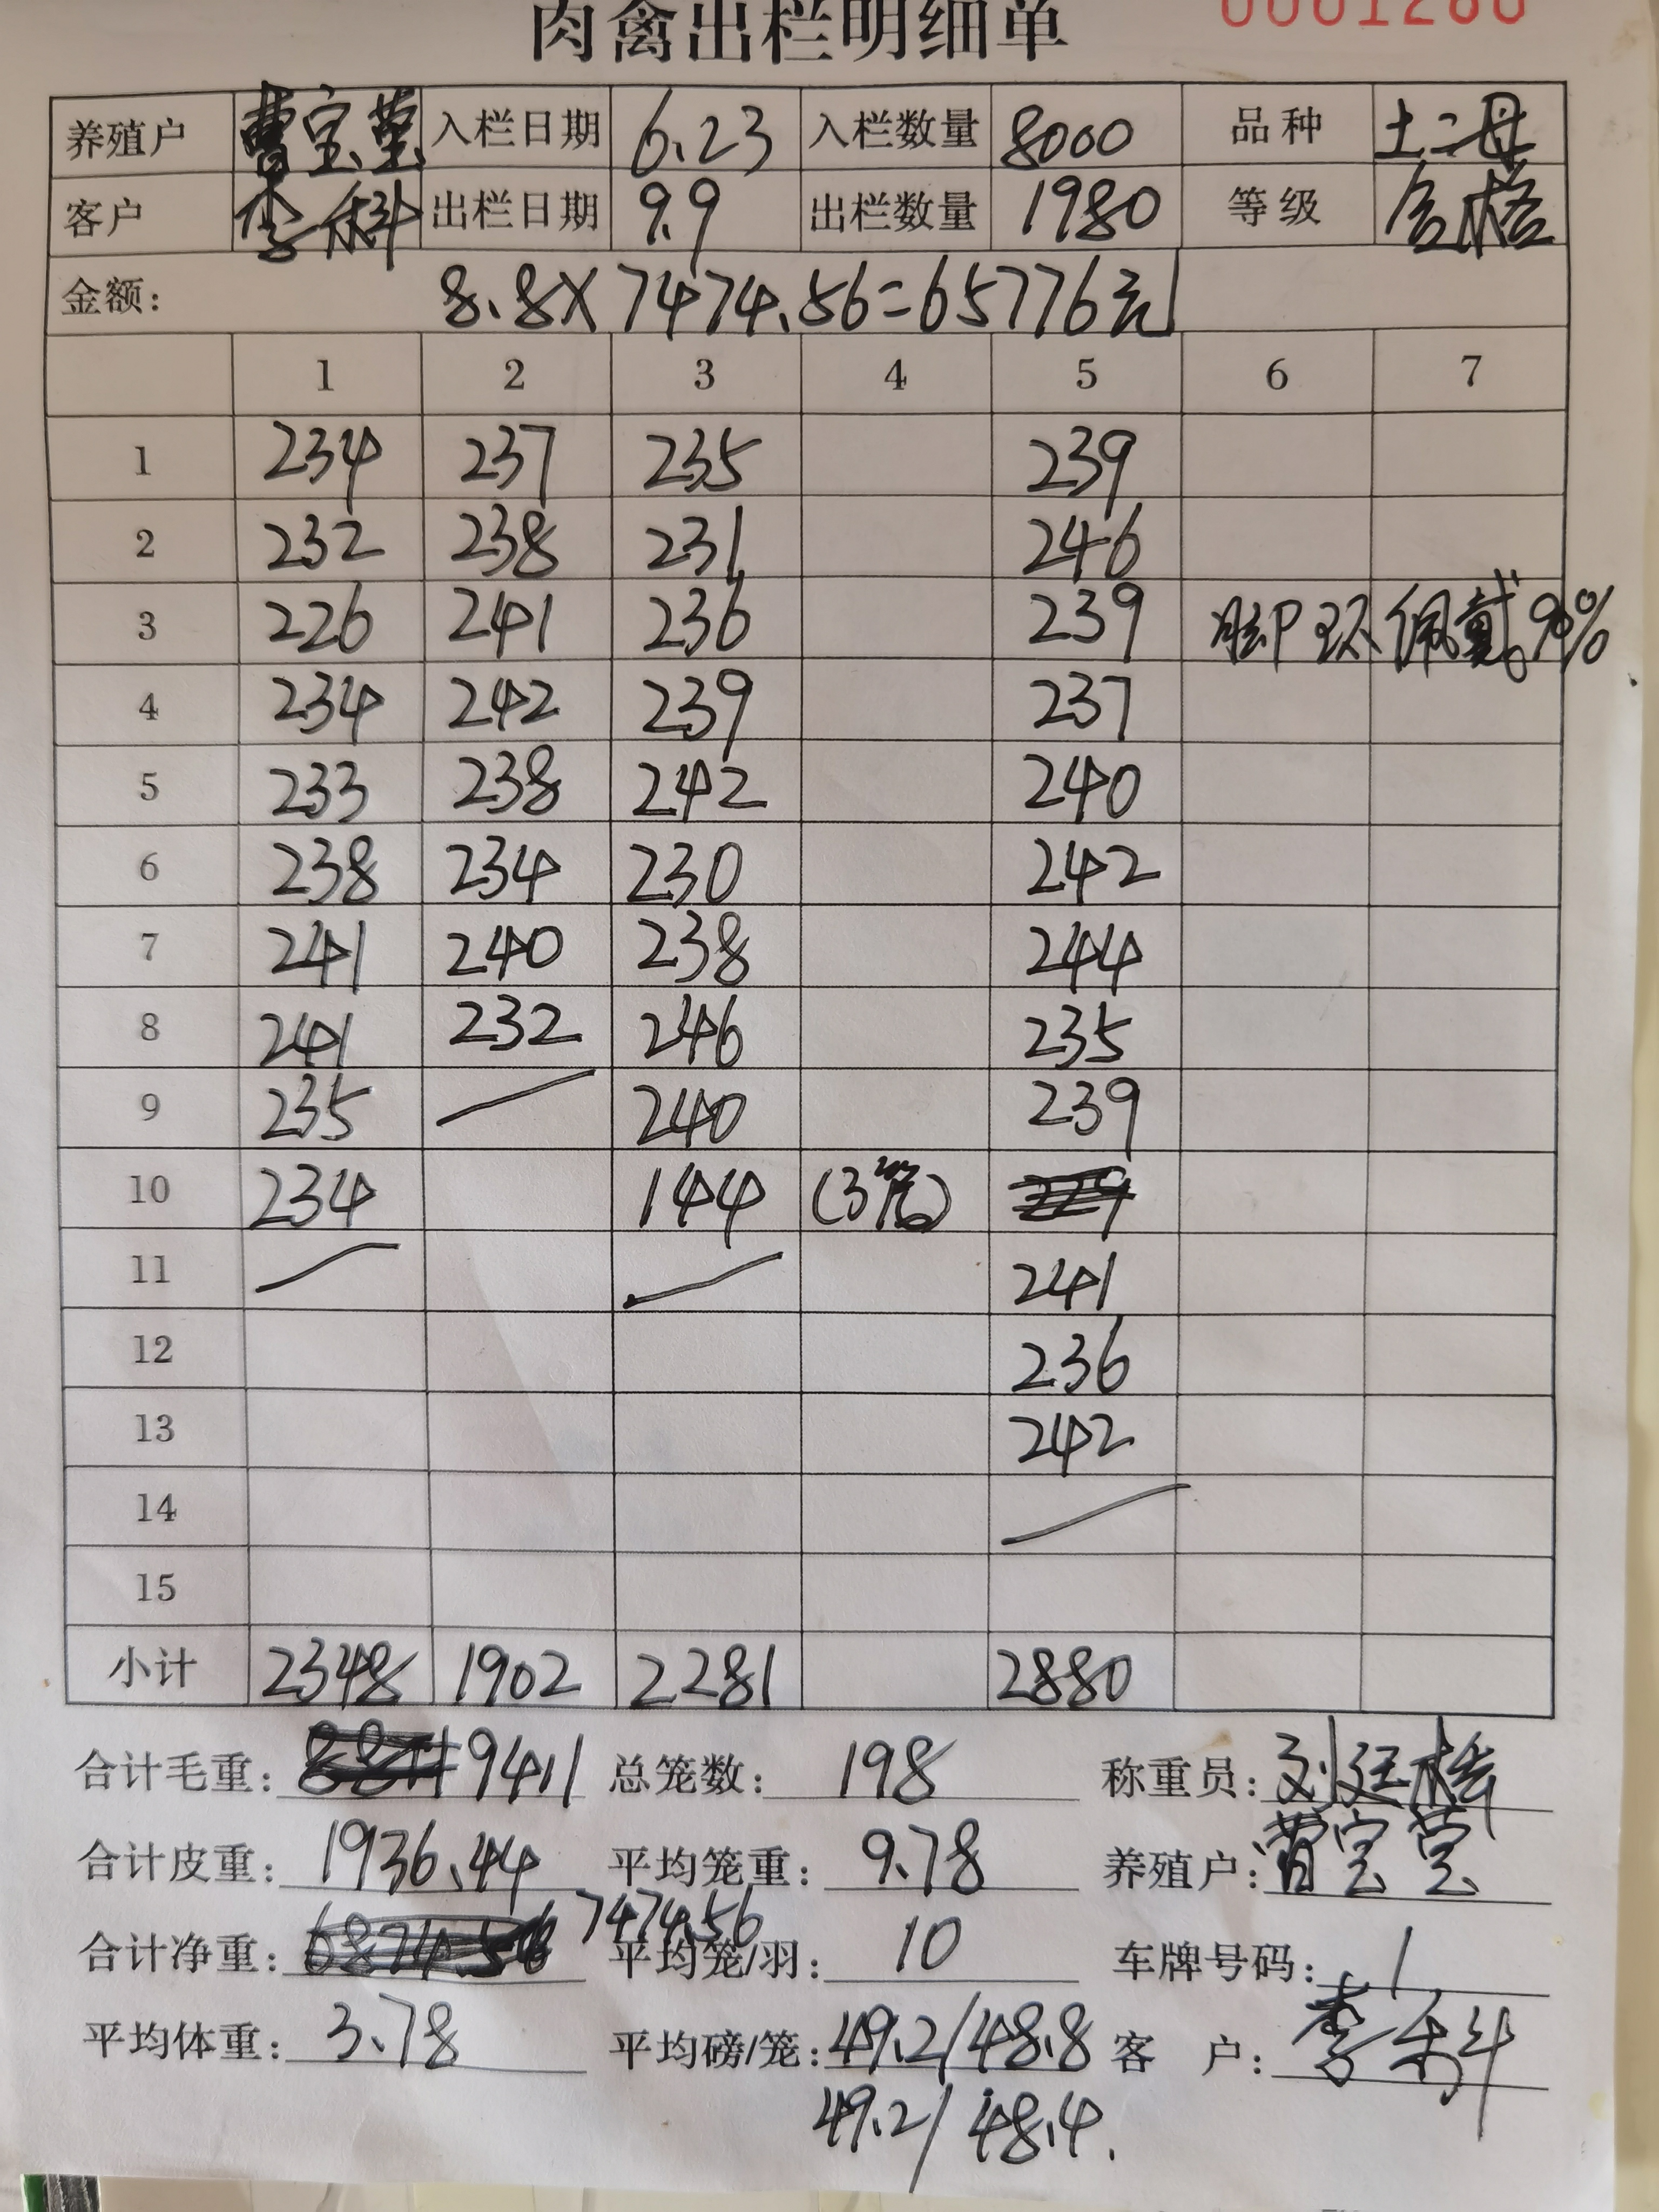 肉禽出栏明细单 0001280
养殖户 曹宝莹 入栏日期 6.23 入栏数量 8000 品种 土二母
客户 李科 出栏日期 9.9 出栏数量 1980 等级 合格
金额: 8.8×7474.56=65776元
1 2 3 4 5 6 7
1 234 237 235 239
2 232 238 231 246
3 226 241 236 239 脚环佩戴90%
4 234 242 239 237
5 233 238 242 240
6 238 234 230 242
7 241 240 238 244
8 241 232 246 235
9 235 240 239
10 234 144 (3笼)
11 241
12 236
13 242
14
15
小计 2348 1902 2281 2880
合计毛重: 9411 总笼数: 198 称重员: 刘廷
合计皮重: 1936.44 平均笼重: 9.78 养殖户: 曹宝莹
合计净重: 7474.56 平均笼/羽: 10 车牌号码: 1
平均体重: 3.78 平均磅/笼: 49.2/48.8 客 户: 李科
49.2/48.4.